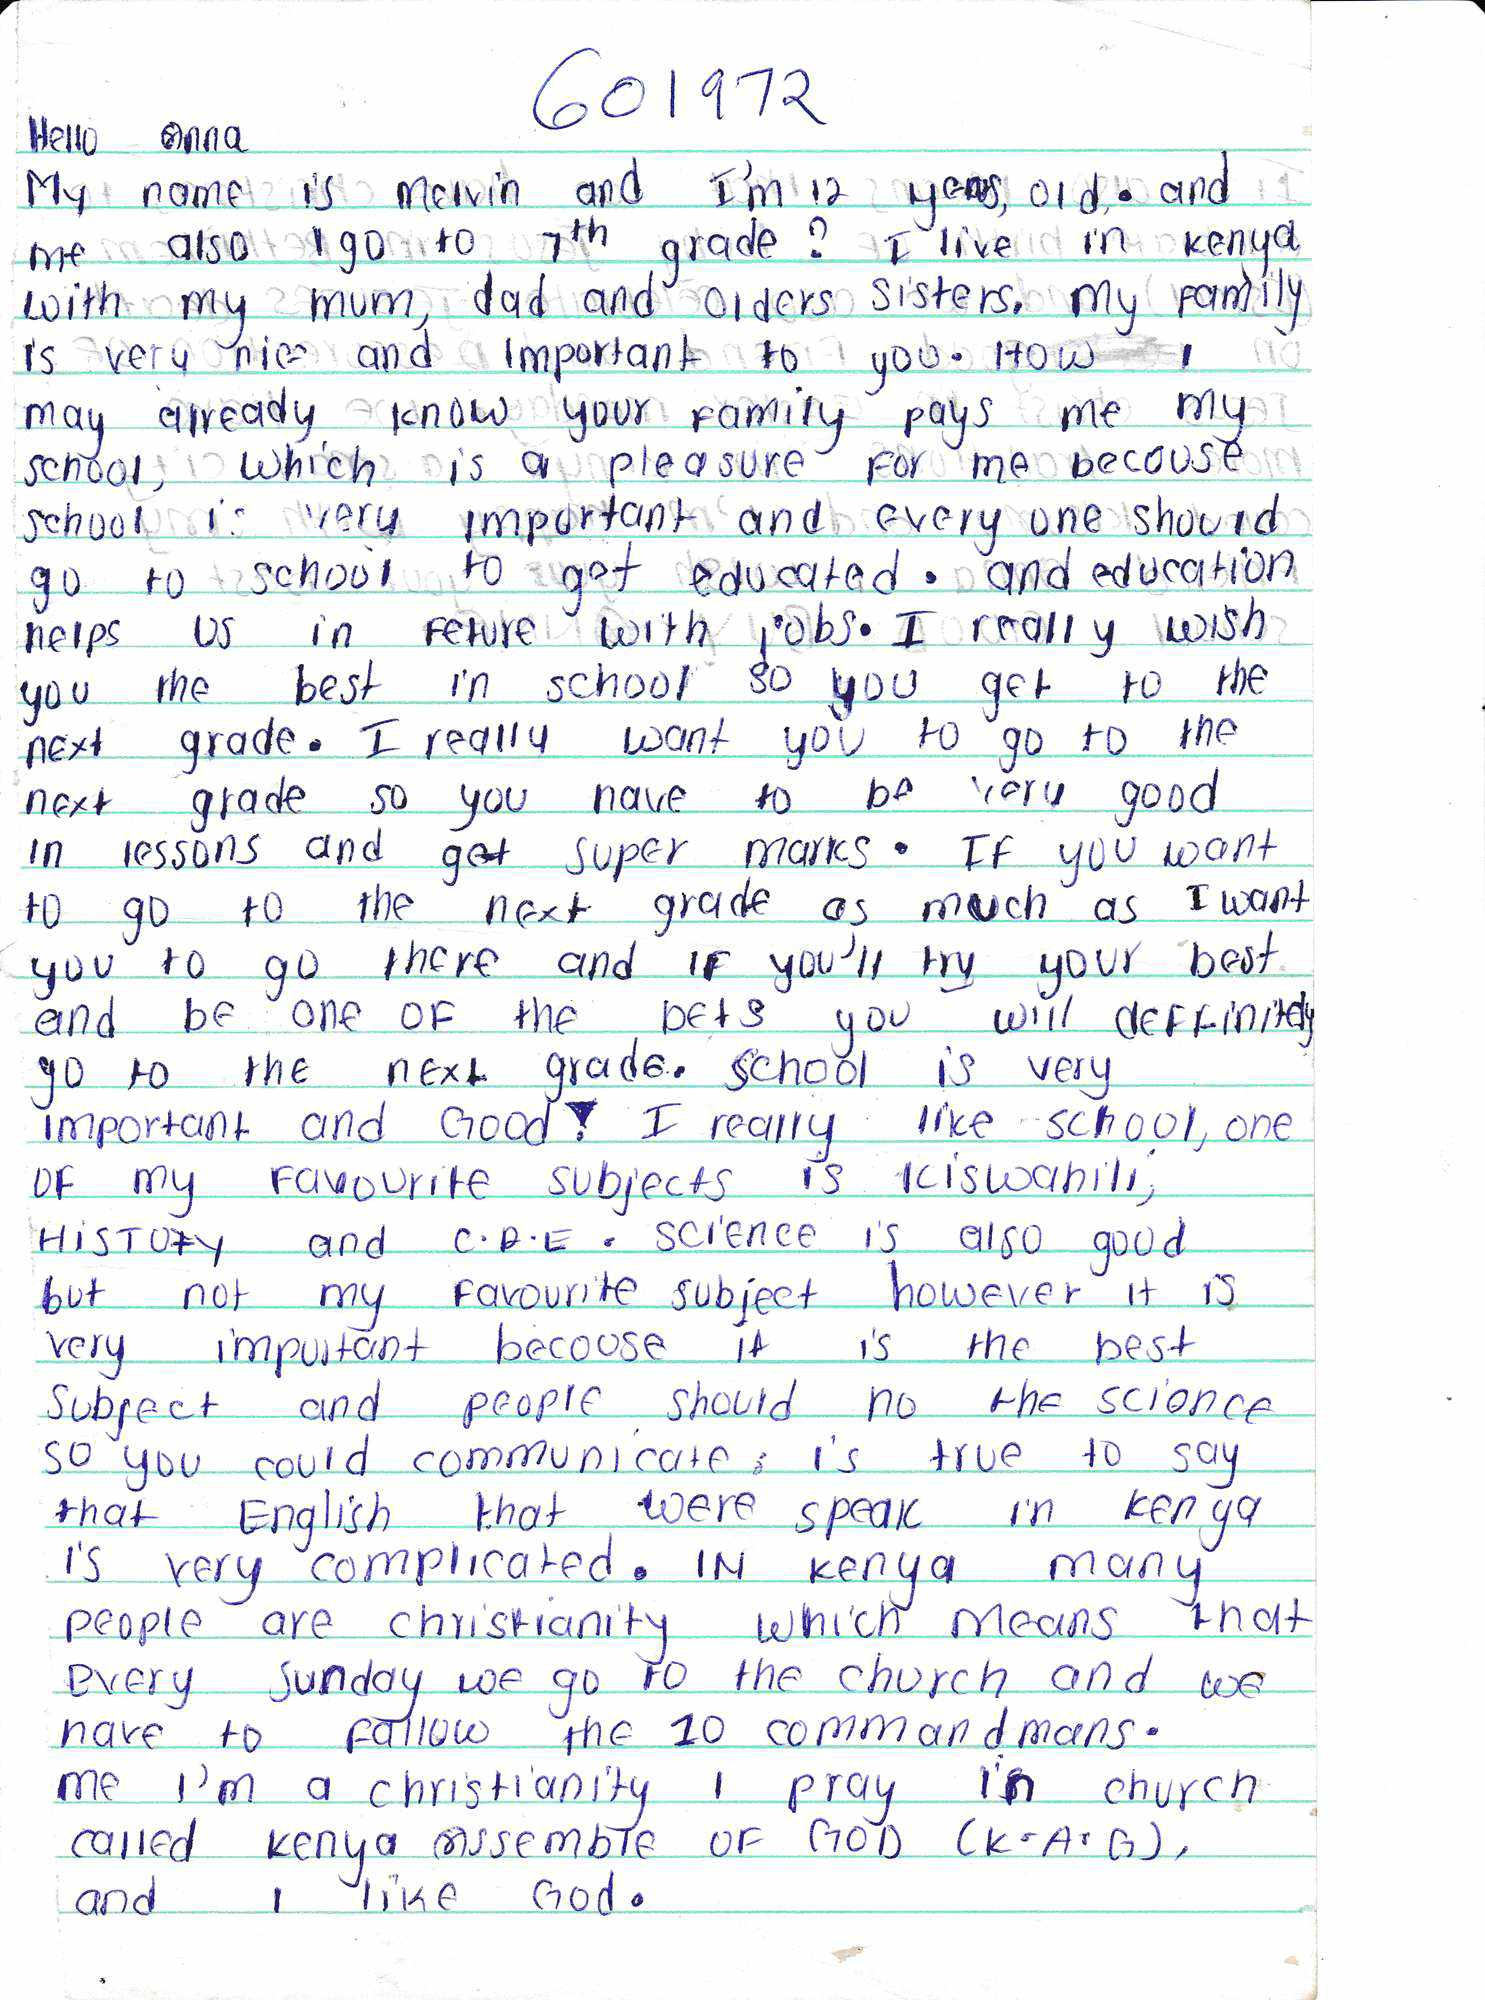 601972
Hello Anna
My name is Melvin and I'm 12 years, old. and
me also I go to 7th grade? I live in kenya
with my mum, dad and olders sisters. My family
is very nice and important to you. How I
may already know your family pays me my
school, which is a pleasure for me becouse
school is very important and every one should
go to school to get educated. and education
helps us in feture with jobs. I really wish
you the best in school so you get to the
next grade. I really want you to go to the
next grade so you have to be very good
in lessons and get super marks. If you want
to go to the next grade as much as I want
you to go there and if you'll try your best
and be one of the bets you will deffinitely
go to the next grade. School is very
important and Good! I really like school, one
of my favourite subjects is Kiswahili,
HISTORY and C.R.E. science is also good
but not my favourite subject however it is
very important becouse it is the best
subject and people should no the science
so you could communicate; is true to say
that English that were speak in kenya
is very complicated. IN kenya many
people are christianity which means that
every sunday we go to the church and we
have to fallow the 10 commandmans.
me I'm a christianity I pray in church
called kenya Assemble OF GOD (K.A.G),
and I like God.